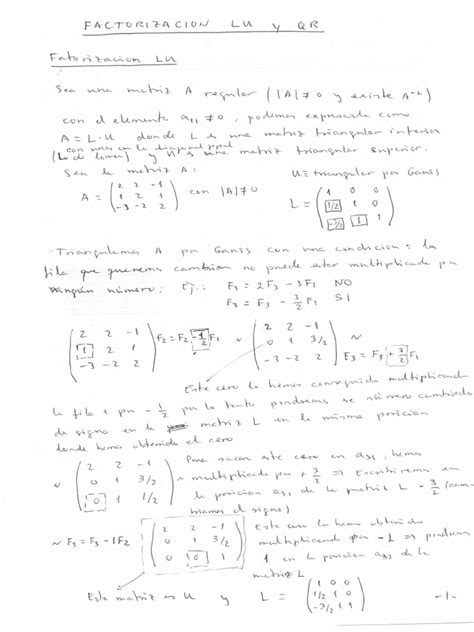 FACTORIZACION LU y QR
Fatorizacion LU
Sea una matriz A regular (|A|≠0 y existe A⁻¹)
con el elemento a₁₁ ≠ 0, podemos expresarla como
A = L·U donde L es una matriz triangular inferior
con unos en la diagonal ppal
(L de lower) y U es una matriz triangular superior.
Sea la matriz A: U ≡ triangular por Gauss
A = (2 2 -1 / 1 2 1 / -3 -2 2) con |A|≠0 L = (1 0 0 / 1/2 1 0 / -3/2 1 1)
Triangulemos A por Gauss con una condicion: la
fila que queremos cambiar no puede estar multiplicada por
ningún número: Ej.: F₃ = 2F₃ - 3F₁ NO
F₃ = F₃ - 3/2 F₁ SI
(2 2 -1 / 1 2 1 / -3 -2 2) F₂ = F₂ - 1/2 F₁ ~ (2 2 -1 / 0 1 3/2 / -3 -2 2) ~ F₃ = F₃ + 3/2 F₁
Este cero lo hemos conseguido multiplicando
la fila 1 por -1/2 por lo tanto pondremos ese número cambiado
de signo en la matriz L en la misma posicion
donde hemos obtenido el cero
~ (2 2 -1 / 0 1 3/2 / 0 1 1/2) ~ Para sacar este cero en a₃₁, hemos
multiplicado por + 3/2 ⇒ Escribiremos en
la posicion a₃₁ de la matriz L - 3/2 (cam-
biamos el signo)
~ F₃ = F₃ - 1F₂ (2 2 -1 / 0 1 3/2 / 0 0 -1) Este cero lo hemos obtenido
multiplicando por -1 ⇒ pondremos
1 en la posicion a₃₂ de la
matriz L
Esta matriz es U y L = (1 0 0 / 1/2 1 0 / -3/2 1 1) -1-